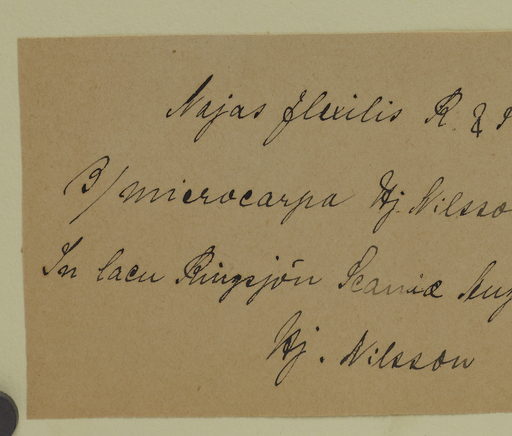 Najas flexilis R. &
β/ microcarpa Hj. Nilsso
In lacu Ringsjön Scaniæ Aug
Hj. Nilsson